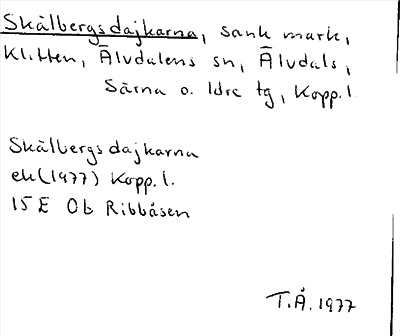 Skålbergsdajkarna, sank mark,
Klitten, Älvdalens sn, Älvdals,
Särna o. Idre tg, Kopp. l.
Skålbergsdajkarna
ek (1977) Kopp. l.
15 E 0b Ribbåsen
T.Å. 1977